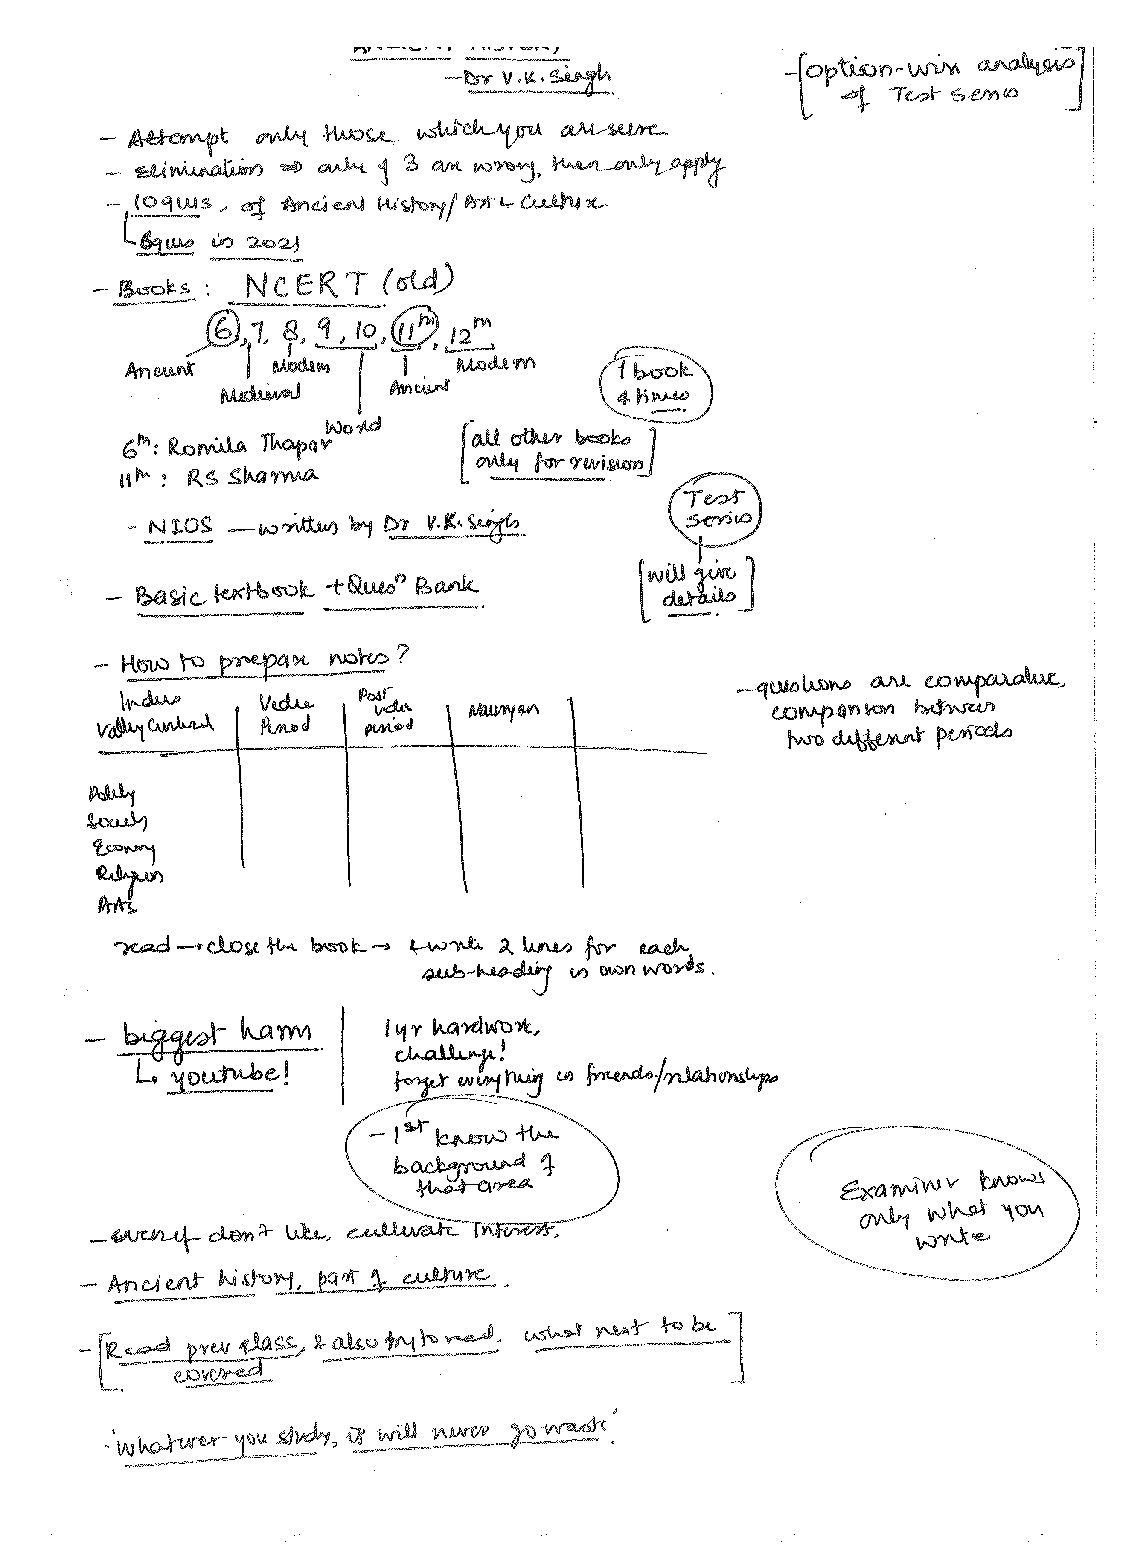 ANCIENT HISTORY
- Dr V.K. Singh
- [option-wise analysis
of Test Series]
- Attempt only those which you are sure
- Elimination ⇒ only if 3 are wrong, then only apply
- 10 ques. of Ancient History/Art & Culture
8 ques in 2021
- Books : NCERT (old)
6, 7, 8, 9, 10, 11th, 12th
Ancient Modern Modern
Medieval Ancient
World
1 book
4 times
6th : Romila Thapar
11th : RS Sharma
[all other books
only for revision]
- NIOS — written by Dr V.K. Singh
Test
series
[will give
details]
- Basic textbook + Quesn Bank
- How to prepare notes?
Indus
Valley Civilization Vedic
Period Post
Vedic
period Mauryan
- questions are comparative,
comparison between
two different periods
Polity
Society
Economy
Religion
A&C
read → close the book → & write 2 lines for each
sub-heading in own words.
- biggest harm
↳ youtube!
1 yr hardwork,
challenge!
forget everything is friends/relationships
- 1st know the
background of
that area
Examiner knows
only what you
write
- even if don't like, cultivate interest.
- Ancient history, part of culture.
- [Read prev class, & also try to read. what next to be
covered]
'Whatever you study, it will never go waste'